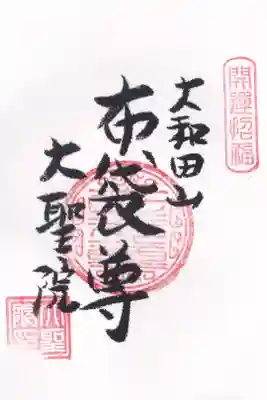 開運招福
大和田山
布袋尊
大聖院